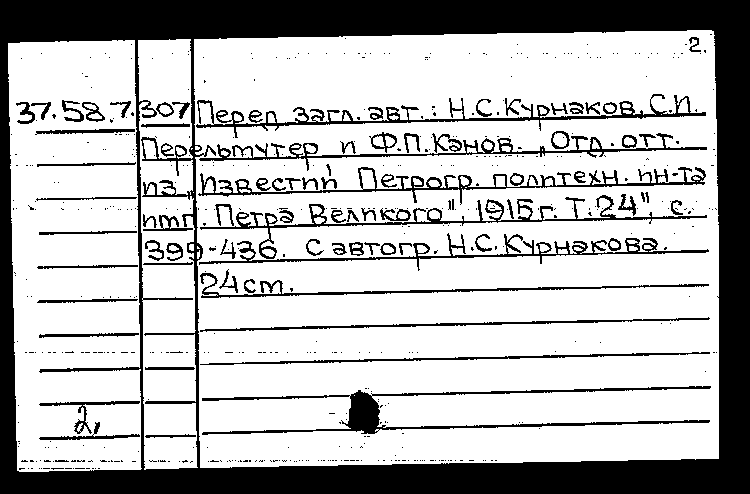 2.
37.58.7.307 Перед загл. авт.: Н.С.Курнаков, С.П.
Перельмутер и Ф.П.Канов. „Отд. отт.
из „Известий Петрогр. политехн. ин-та
имп. Петра Великого", 1915 г. Т. 24", с.
399-436. С автогр. Н.С.Курнакова.
24 см.
2,